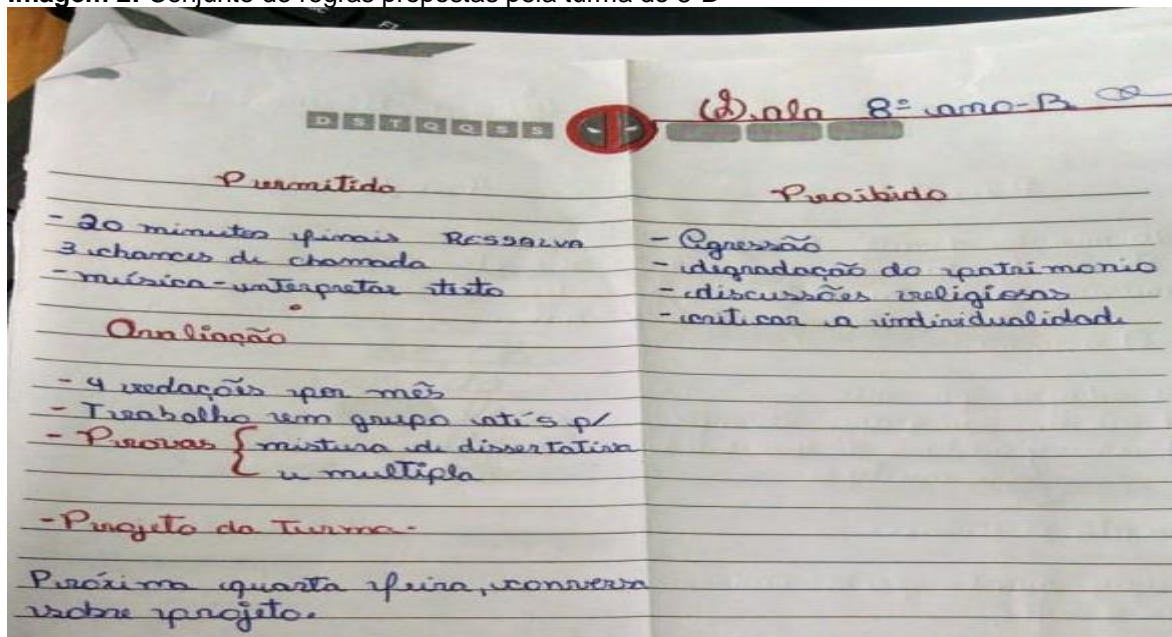 Imagem 2: Conjunto de regras propostas pela turma do 8ºB
D S T Q Q S S
Sala 8º ano-B
Permitido
- 20 minutos finais RESSALVA
3 chances de chamada
- música-interpretar texto
Avaliação
- 4 redações por mês
- Trabalho em grupo até 5 p/
- Provas { mistura de dissertativa
e multipla
- Projeto da Turma -
Próxima quarta feira, conversa
sobre projeto.
Proibido
- Agressão
- degradação do patrimonio
- discussões religiosas
- criticar a individualidade